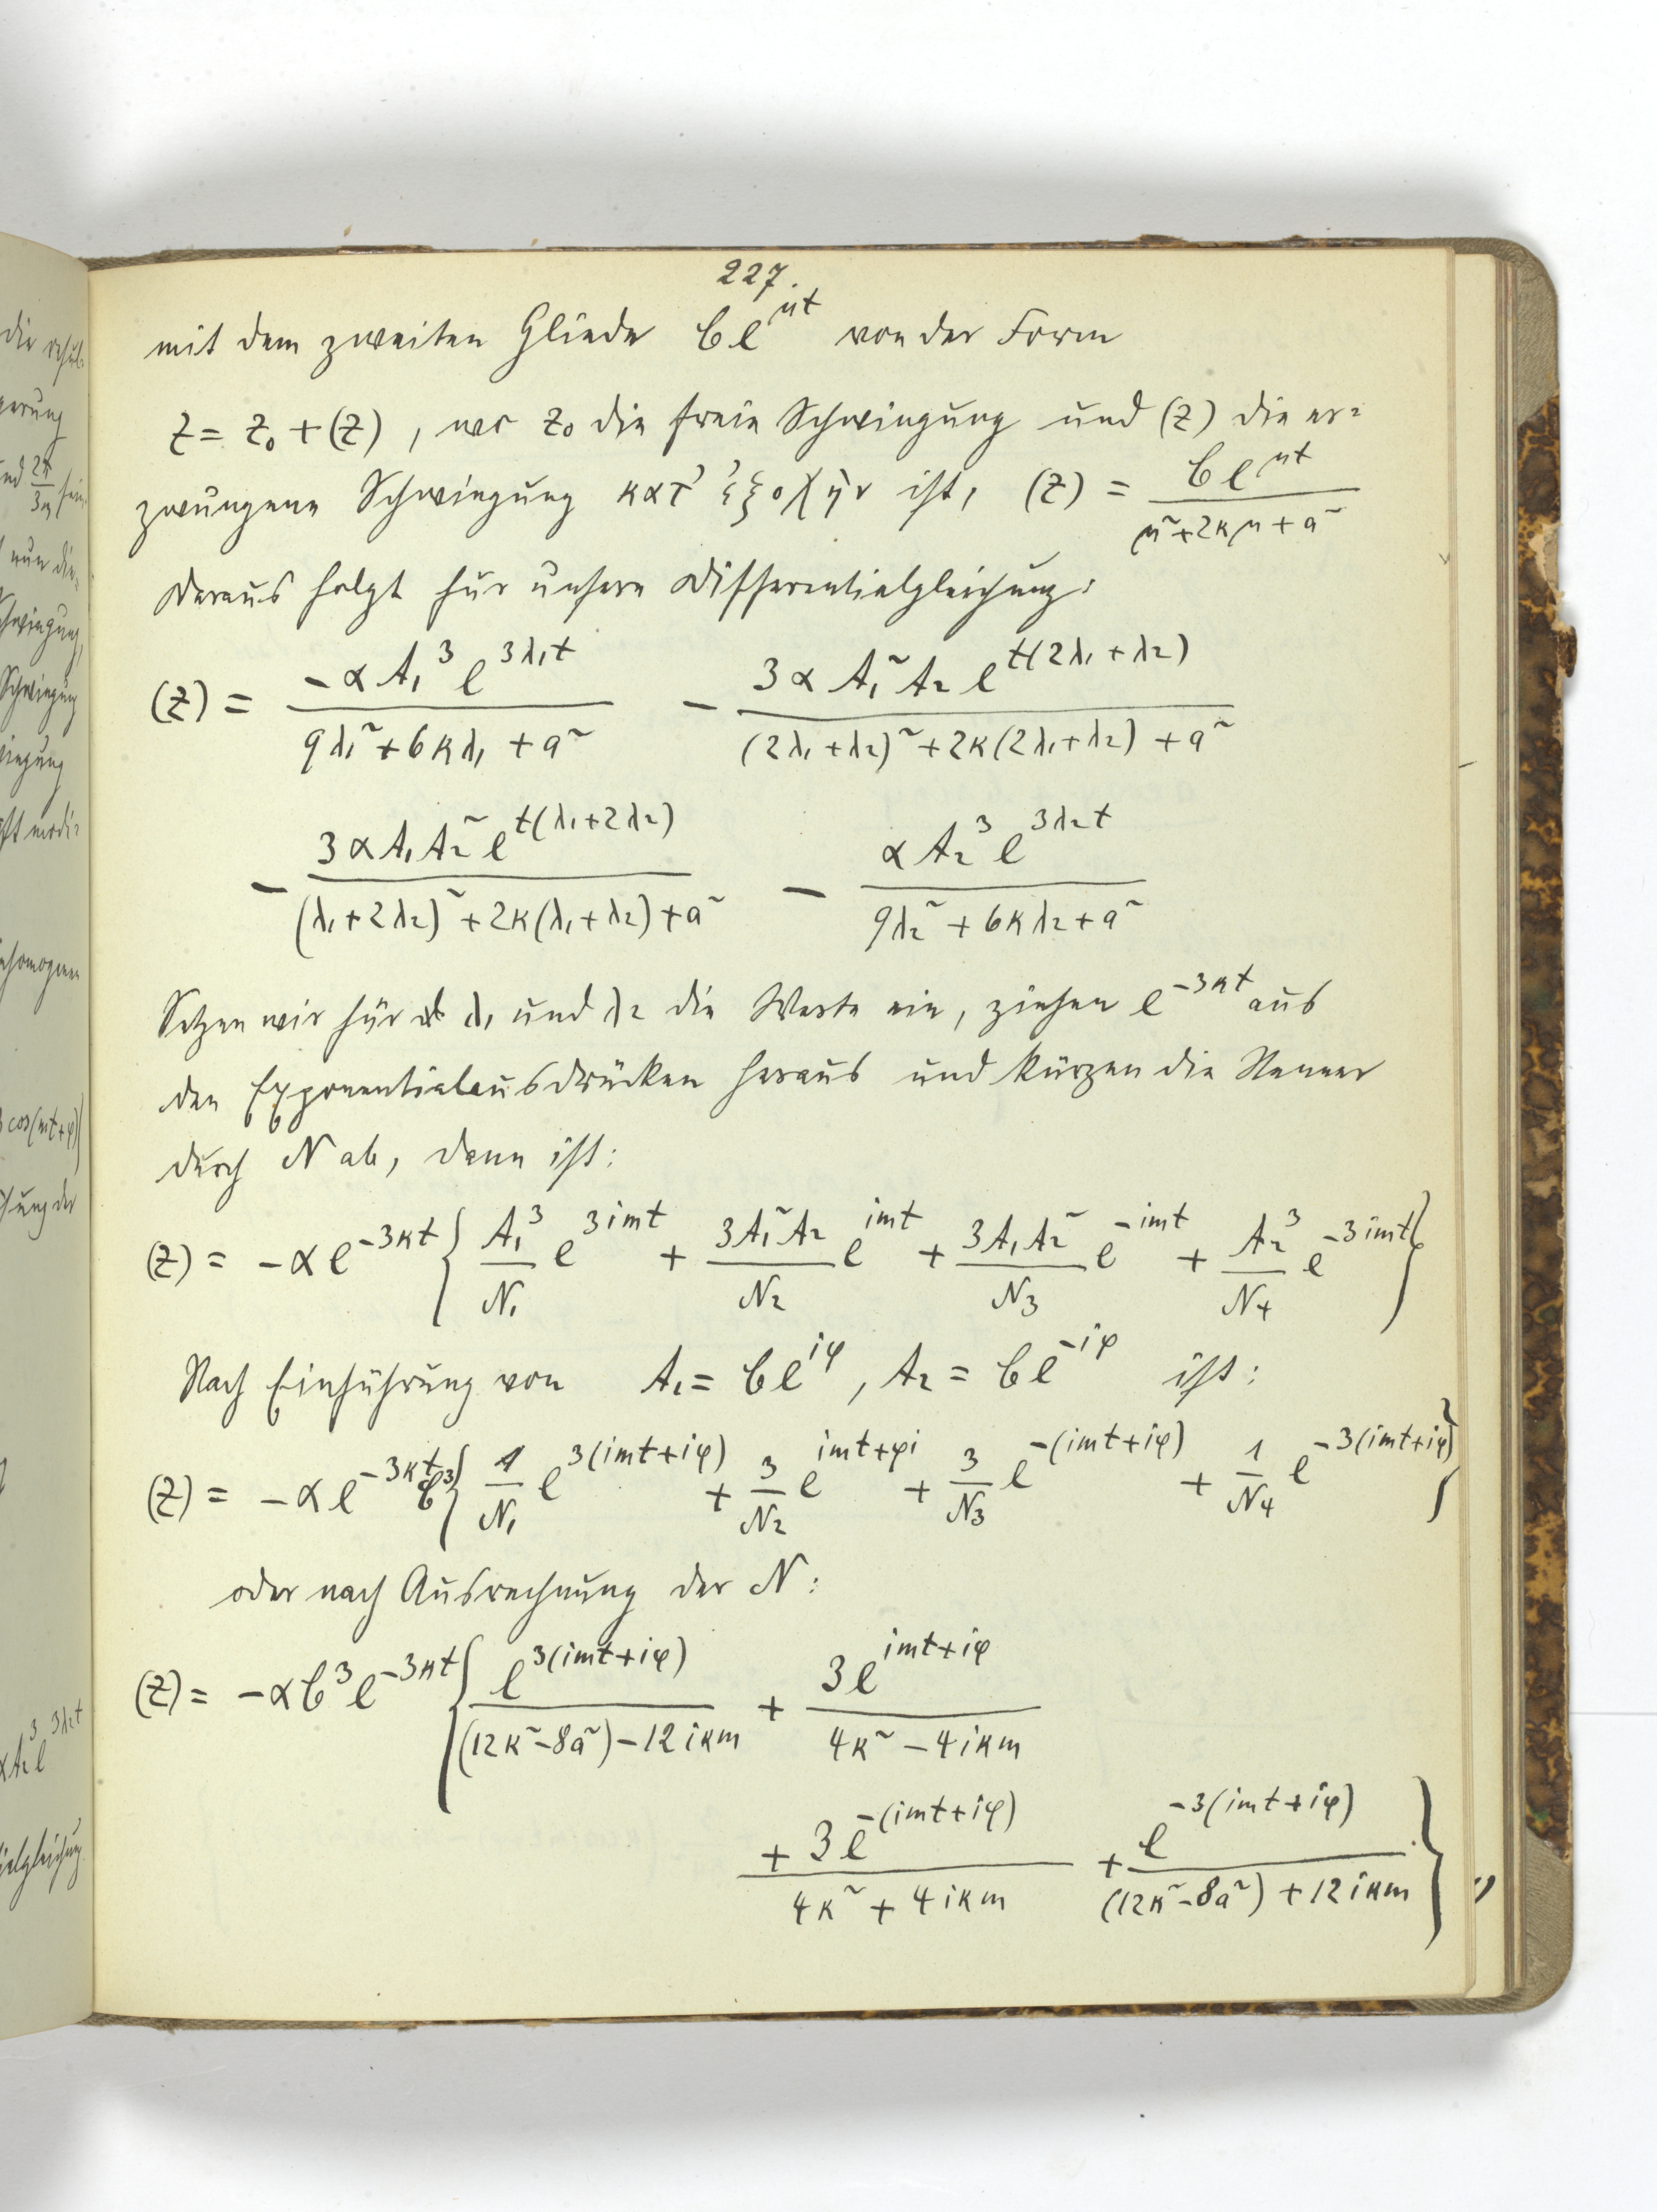 227.
mit dem zweiten Gliede b e^{μt} von der Form
z = z₀ + (z), wo z₀ die freie Schwingung und (z) die er=
zwungene Schwingung κατ' ἐξοχήν ist, (z) = b e^{μt} / (μ² + 2κμ + a²)
Daraus folgt für unsere Differentialgleichung:
(z) = -αA₁³ e^{3λ₁t} / (9λ₁² + 6κλ₁ + a²) - 3αA₁²A₂ e^{t(2λ₁+λ₂)} / ((2λ₁+λ₂)² + 2κ(2λ₁+λ₂) + a²)
- 3αA₁A₂² e^{t(λ₁+2λ₂)} / ((λ₁+2λ₂)² + 2κ(λ₁+λ₂) + a²) - αA₂³ e^{3λ₂t} / (9λ₂² + 6κλ₂ + a²)
Setzen wir für λ₁ und λ₂ die Werte ein, ziehen e^{-3κt} aus
den Exponentialausdrücken heraus und kürzen die Nenner
durch N ab, dann ist:
(z) = -αe^{-3κt} { A₁³/N₁ e^{3imt} + 3A₁²A₂/N₂ e^{imt} + 3A₁A₂²/N₃ e^{-imt} + A₂³/N₄ e^{-3imt} }
Nach Einführung von A₁ = b e^{iφ}, A₂ = b e^{-iφ} ist:
(z) = -αe^{-3κt} b³ { 1/N₁ e^{3(imt+iφ)} + 3/N₂ e^{imt+φi} + 3/N₃ e^{-(imt+iφ)} + 1/N₄ e^{-3(imt+iφ)} }
oder nach Ausrechnung der N:
(z) = -αb³e^{-3κt} { e^{3(imt+iφ)} / ((12κ²-8a²) - 12iκm) + 3e^{imt+iφ} / (4κ² - 4iκm)
+ 3e^{-(imt+iφ)} / (4κ² + 4iκm) + e^{-3(imt+iφ)} / ((12κ²-8a²) + 12iκm) }